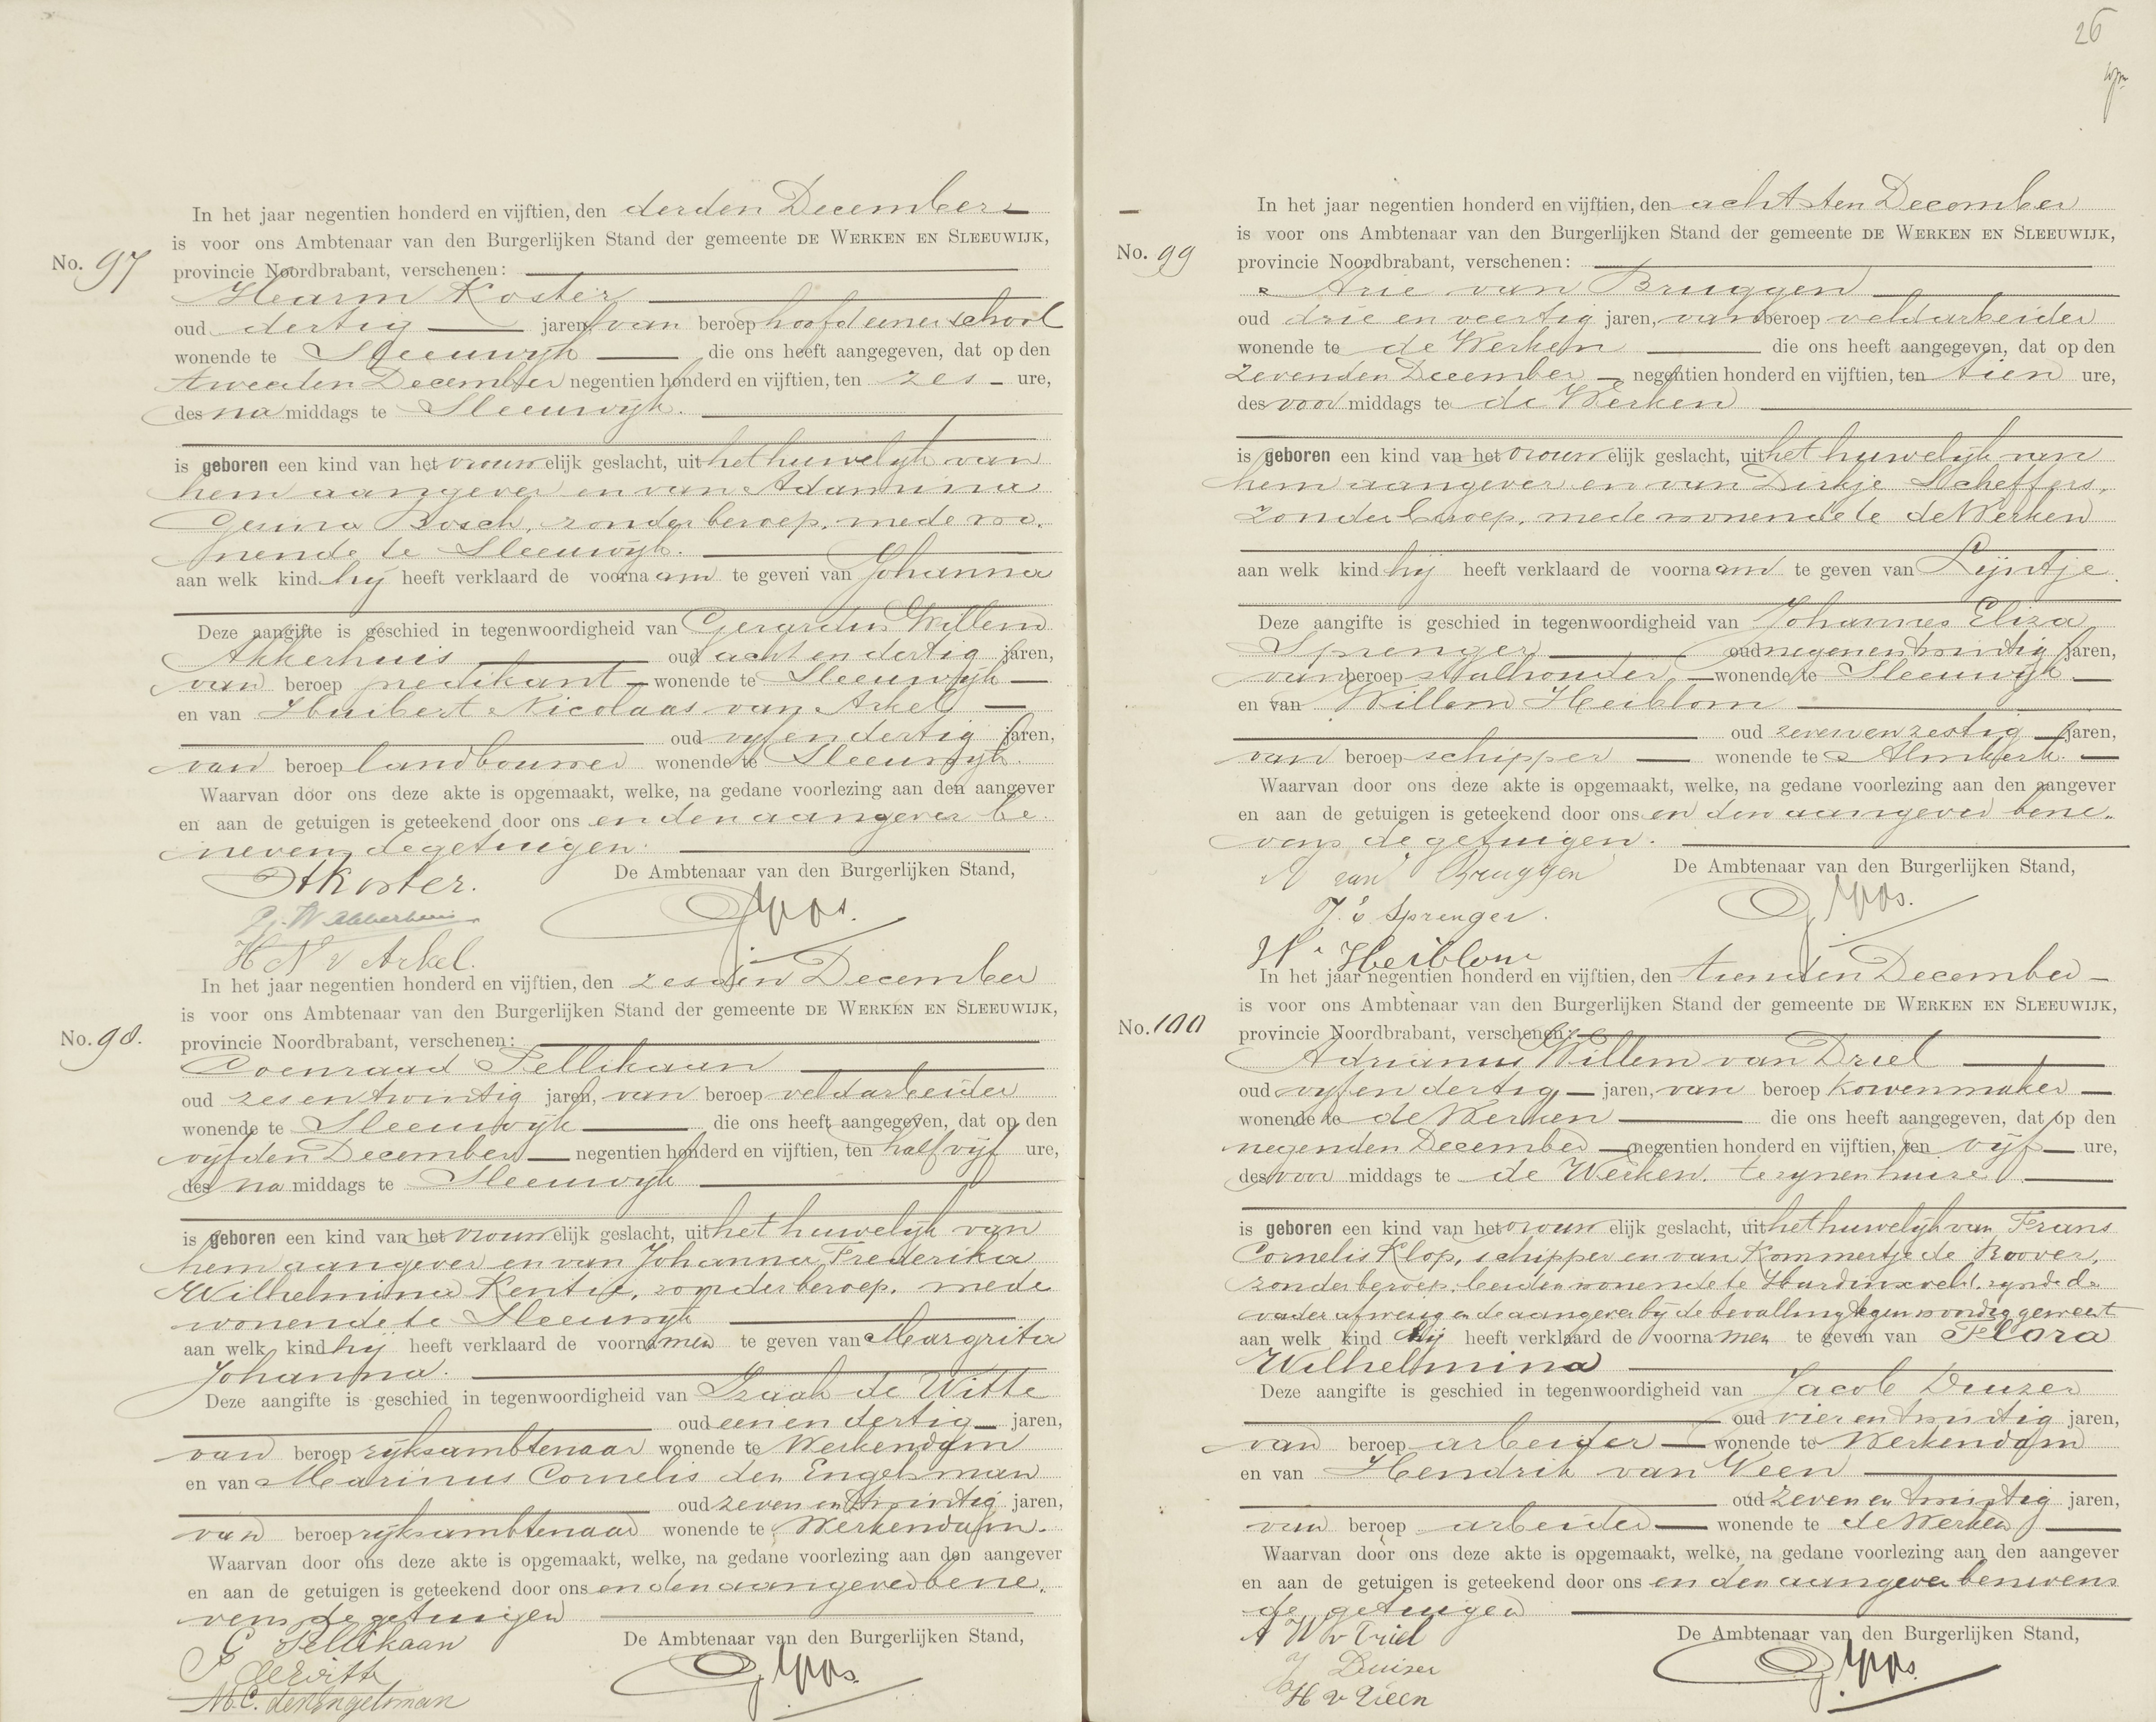 No. 97
In het jaar negentien honderd en vijftien, den derden December
is voor ons Ambtenaar van den Burgerlijken Stand der gemeente DE WERKEN EN SLEEUWIJK,
provincie Noordbrabant, verschenen:
Harm Koster
oud dertig jaren, van beroep hoofd eener school
wonende te Sleeuwijk die ons heeft aangegeven, dat op den
tweeden December negentien honderd en vijftien, ten zes ure,
des na middags te Sleeuwijk.
is geboren een kind van het vrouwelijk geslacht, uit het huwelijk van
hem aangever en van Adamina
Gesina Bosch, zonder beroep, mede wo-
nende te Sleeuwijk.
aan welk kind hij heeft verklaard de voornaam te geven van Johanna
Deze aangifte is geschied in tegenwoordigheid van Gerardus Willem
Akkerhuis oud acht en dertig jaren,
van beroep predikant wonende te Sleeuwijk
en van Huibert Nicolaas van Arkel
oud vijf en dertig jaren,
van beroep landbouwer wonende te Sleeuwijk.
Waarvan door ons deze akte is opgemaakt, welke, na gedane voorlezing aan den aangever
en aan de getuigen is geteekend door ons en den aangever be-
nevens de getuigen.
De Ambtenaar van den Burgerlijken Stand,
HKoster.
G. W Akkerhuis
H N v Arkel.
No. 98.
In het jaar negentien honderd en vijftien, den zesden December
is voor ons Ambtenaar van den Burgerlijken Stand der gemeente DE WERKEN EN SLEEUWIJK,
provincie Noordbrabant, verschenen:
Coenraad Pellikaan
oud zes en twintig jaren, van beroep veldarbeider
wonende te Sleeuwijk die ons heeft aangegeven, dat op den
vijfden December negentien honderd en vijftien, ten half vijf ure,
des na middags te Sleeuwijk
is geboren een kind van het vrouwelijk geslacht, uit het huwelijk van
hem aangever en van Johanna Frederika
Wilhelmina Kentie, zonder beroep, mede
wonende te Sleeuwijk
aan welk kind hij heeft verklaard de voornamen te geven van Margrita
Johanna.
Deze aangifte is geschied in tegenwoordigheid van Izaak de Witte
oud een en dertig jaren,
van beroep rijksambtenaar wonende te Werkendam
en van Marinus Cornelis den Engelsman
oud zeven en twintig jaren,
van beroep rijksambtenaar wonende te Werkendam.
Waarvan door ons deze akte is opgemaakt, welke, na gedane voorlezing aan den aangever
en aan de getuigen is geteekend door ons en den aangever bene-
vens de getuigen
De Ambtenaar van den Burgerlijken Stand,
C Pellikaan
deWitte
M.C. den Engelsman
26
No. 99
In het jaar negentien honderd en vijftien, den achtsten December
is voor ons Ambtenaar van den Burgerlijken Stand der gemeente DE WERKEN EN SLEEUWIJK,
provincie Noordbrabant, verschenen:
Arie van Bruggen
oud drie en veertig jaren, van beroep veldarbeider
wonende te de Werken die ons heeft aangegeven, dat op den
zevenden December negentien honderd en vijftien, ten tien ure,
des voor middags te de Werken
is geboren een kind van het vrouwelijk geslacht, uit het huwelijk van
hem aangever en van Dirkje Scheffers,
zonder beroep, mede wonende te de Werken
aan welk kind hij heeft verklaard de voornaam te geven van Lijntje.
Deze aangifte is geschied in tegenwoordigheid van Johannes Eliza
Sprenger oud negen en twintig jaren,
van beroep stalhouder wonende te Sleeuwijk
en van Willem Heiblom
oud zeven en zestig jaren,
van beroep schipper wonende te Almkerk.
Waarvan door ons deze akte is opgemaakt, welke, na gedane voorlezing aan den aangever
en aan de getuigen is geteekend door ons en den aangever bene-
vens de getuigen.
De Ambtenaar van den Burgerlijken Stand,
A van Bruggen
J. E Sprenger.
W. Heiblom
No. 100
In het jaar negentien honderd en vijftien, den tienden December
is voor ons Ambtenaar van den Burgerlijken Stand der gemeente DE WERKEN EN SLEEUWIJK,
provincie Noordbrabant, verschenen:
Adrianus Willem van Driel
oud vijf en dertig jaren, van beroep korvenmaker
wonende te de Werken die ons heeft aangegeven, dat op den
negenden December negentien honderd en vijftien, ten vijf ure,
des voor middags te de Werken. te zijnen huize
is geboren een kind van het vrouwelijk geslacht, uit het huwelijk van Frans
Cornelis Klop, schipper en van Kommertje de Roover,
zonder beroep, beiden wonende te Hardinxveld. zijnde de
vader afwezig en de aangever bij de bevalling tegenwoordig geweest
aan welk kind hij heeft verklaard de voornamen te geven van Flora
Wilhelmina
Deze aangifte is geschied in tegenwoordigheid van Jacob Duizer
oud vier en twintig jaren,
van beroep arbeider wonende te Werkendam
en van Hendrik van Veen
oud zeven en twintig jaren,
van beroep arbeider wonende te de Werken
Waarvan door ons deze akte is opgemaakt, welke, na gedane voorlezing aan den aangever
en aan de getuigen is geteekend door ons en den aangever benevens
de getuigen
De Ambtenaar van den Burgerlijken Stand,
A W v Driel
J Duizer
H v Veen